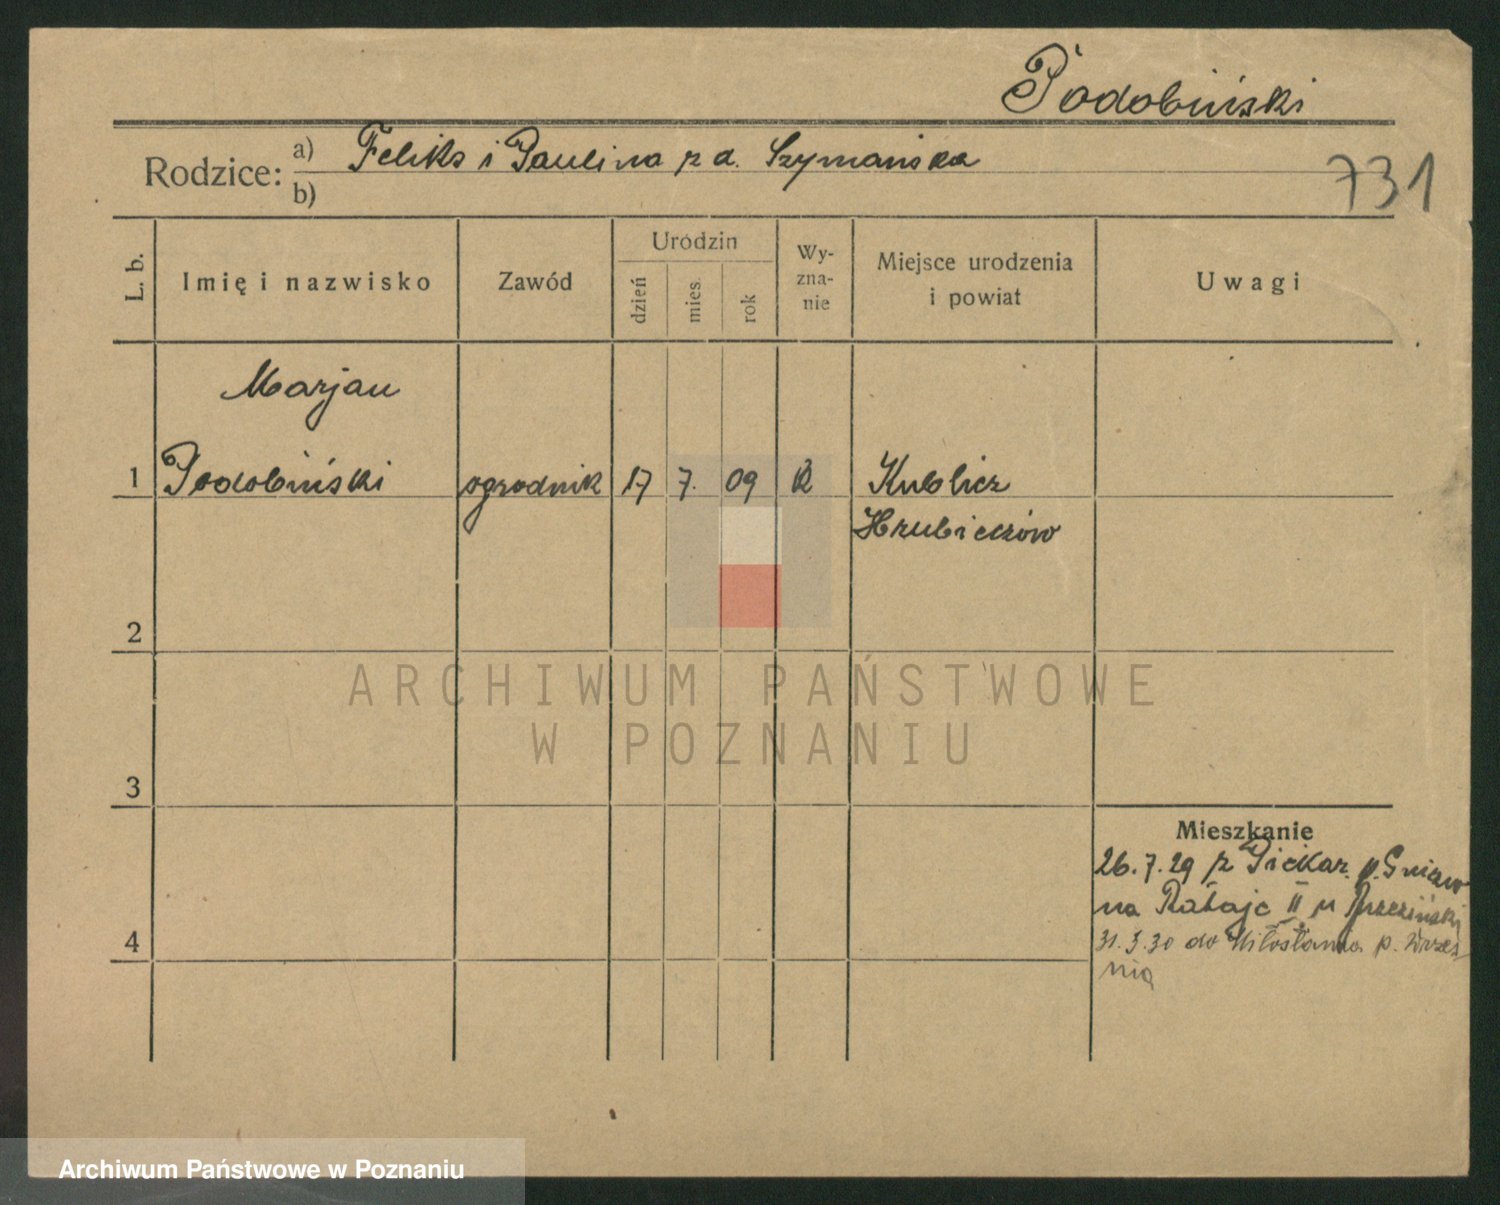 Podobiński
Rodzice: a) Feliks i Paulina z d. Szymańska
b)
731
L. b.
Imię i nazwisko
Zawód
Urodzin
dzień
mies.
rok
Wy-
zna-
nie
Miejsce urodzenia
i powiat
Uwagi
Marjan
1 Podobiński ogrodnik 17 7. 09 R Kublicz
Hrubieczów
2
ARCHIWUM PAŃSTWOWE
W POZNANIU
3
Mieszkanie
26.7.29 z Piekar p. Gniezno
na Rataje II u Brzeziński
4
31.3.30 do Miłosławia p. Wrześ
nia
Archiwum Państwowe w Poznaniu